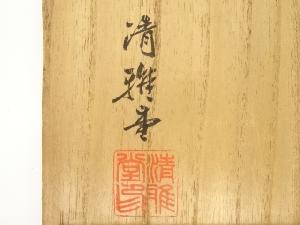 清雅堂
清雅
堂印